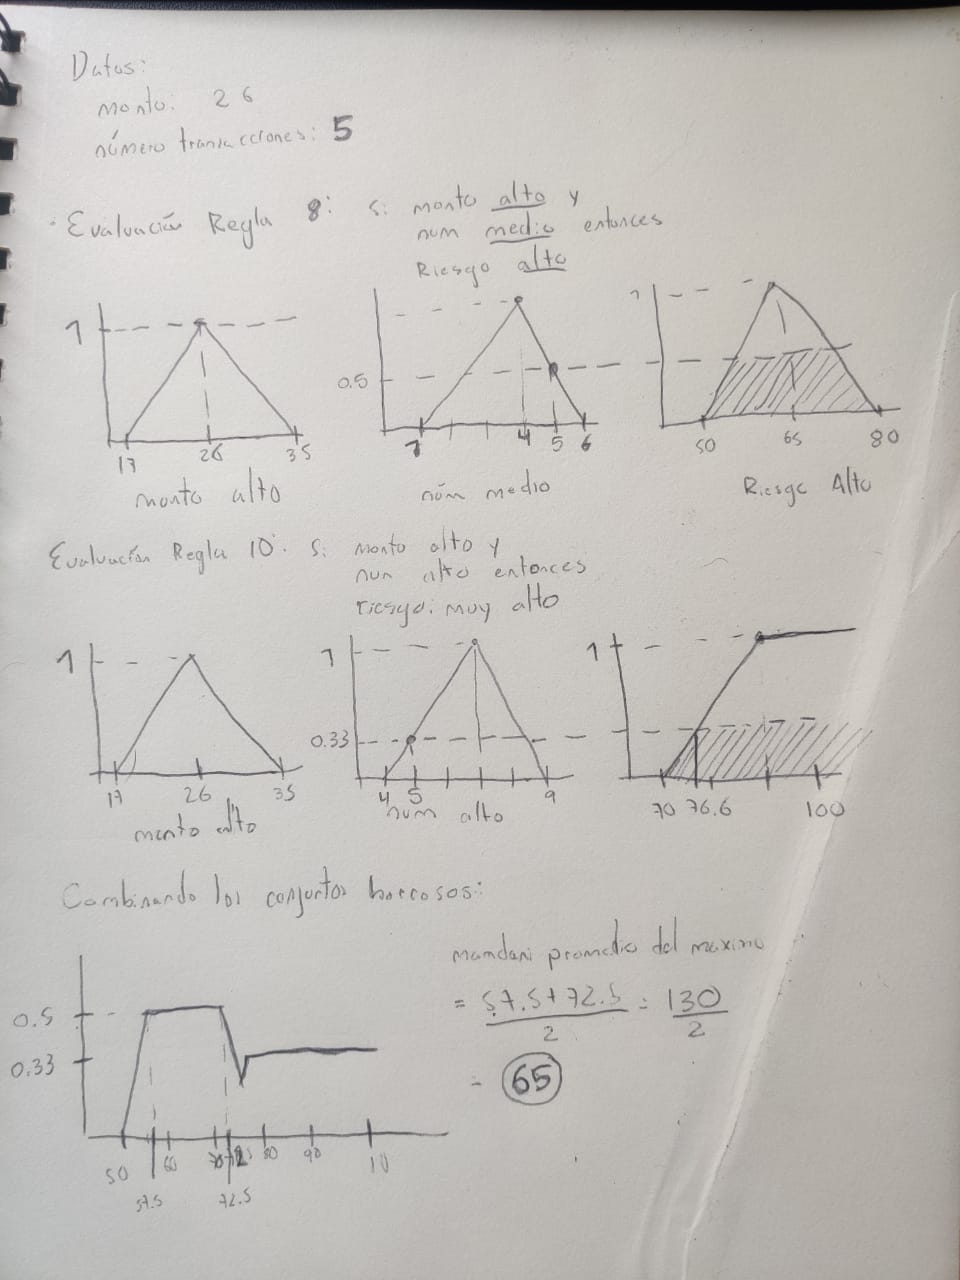 Datos:
monto: 26
número transacciones: 5
Evaluación Regla 8: Si monto alto y
num medio entonces
Riesgo alto
1
17 26 35
monto alto
0.5
1 4 5 6
núm medio
1
50 65 80
Riesgo Alto
Evaluación Regla 10: Si monto alto y
num alto entonces
riesgo: muy alto
1
17 26 35
monto alto
1
0.33
4 5 9
num alto
1
70 76.6 100
Combinando los conjuntos borrosos:
0.5
0.33
50 57.5 60 70 72.5 80 90 10
mamdani promedio del maximo
= 57.5+72.5 / 2 = 130 / 2
= 65